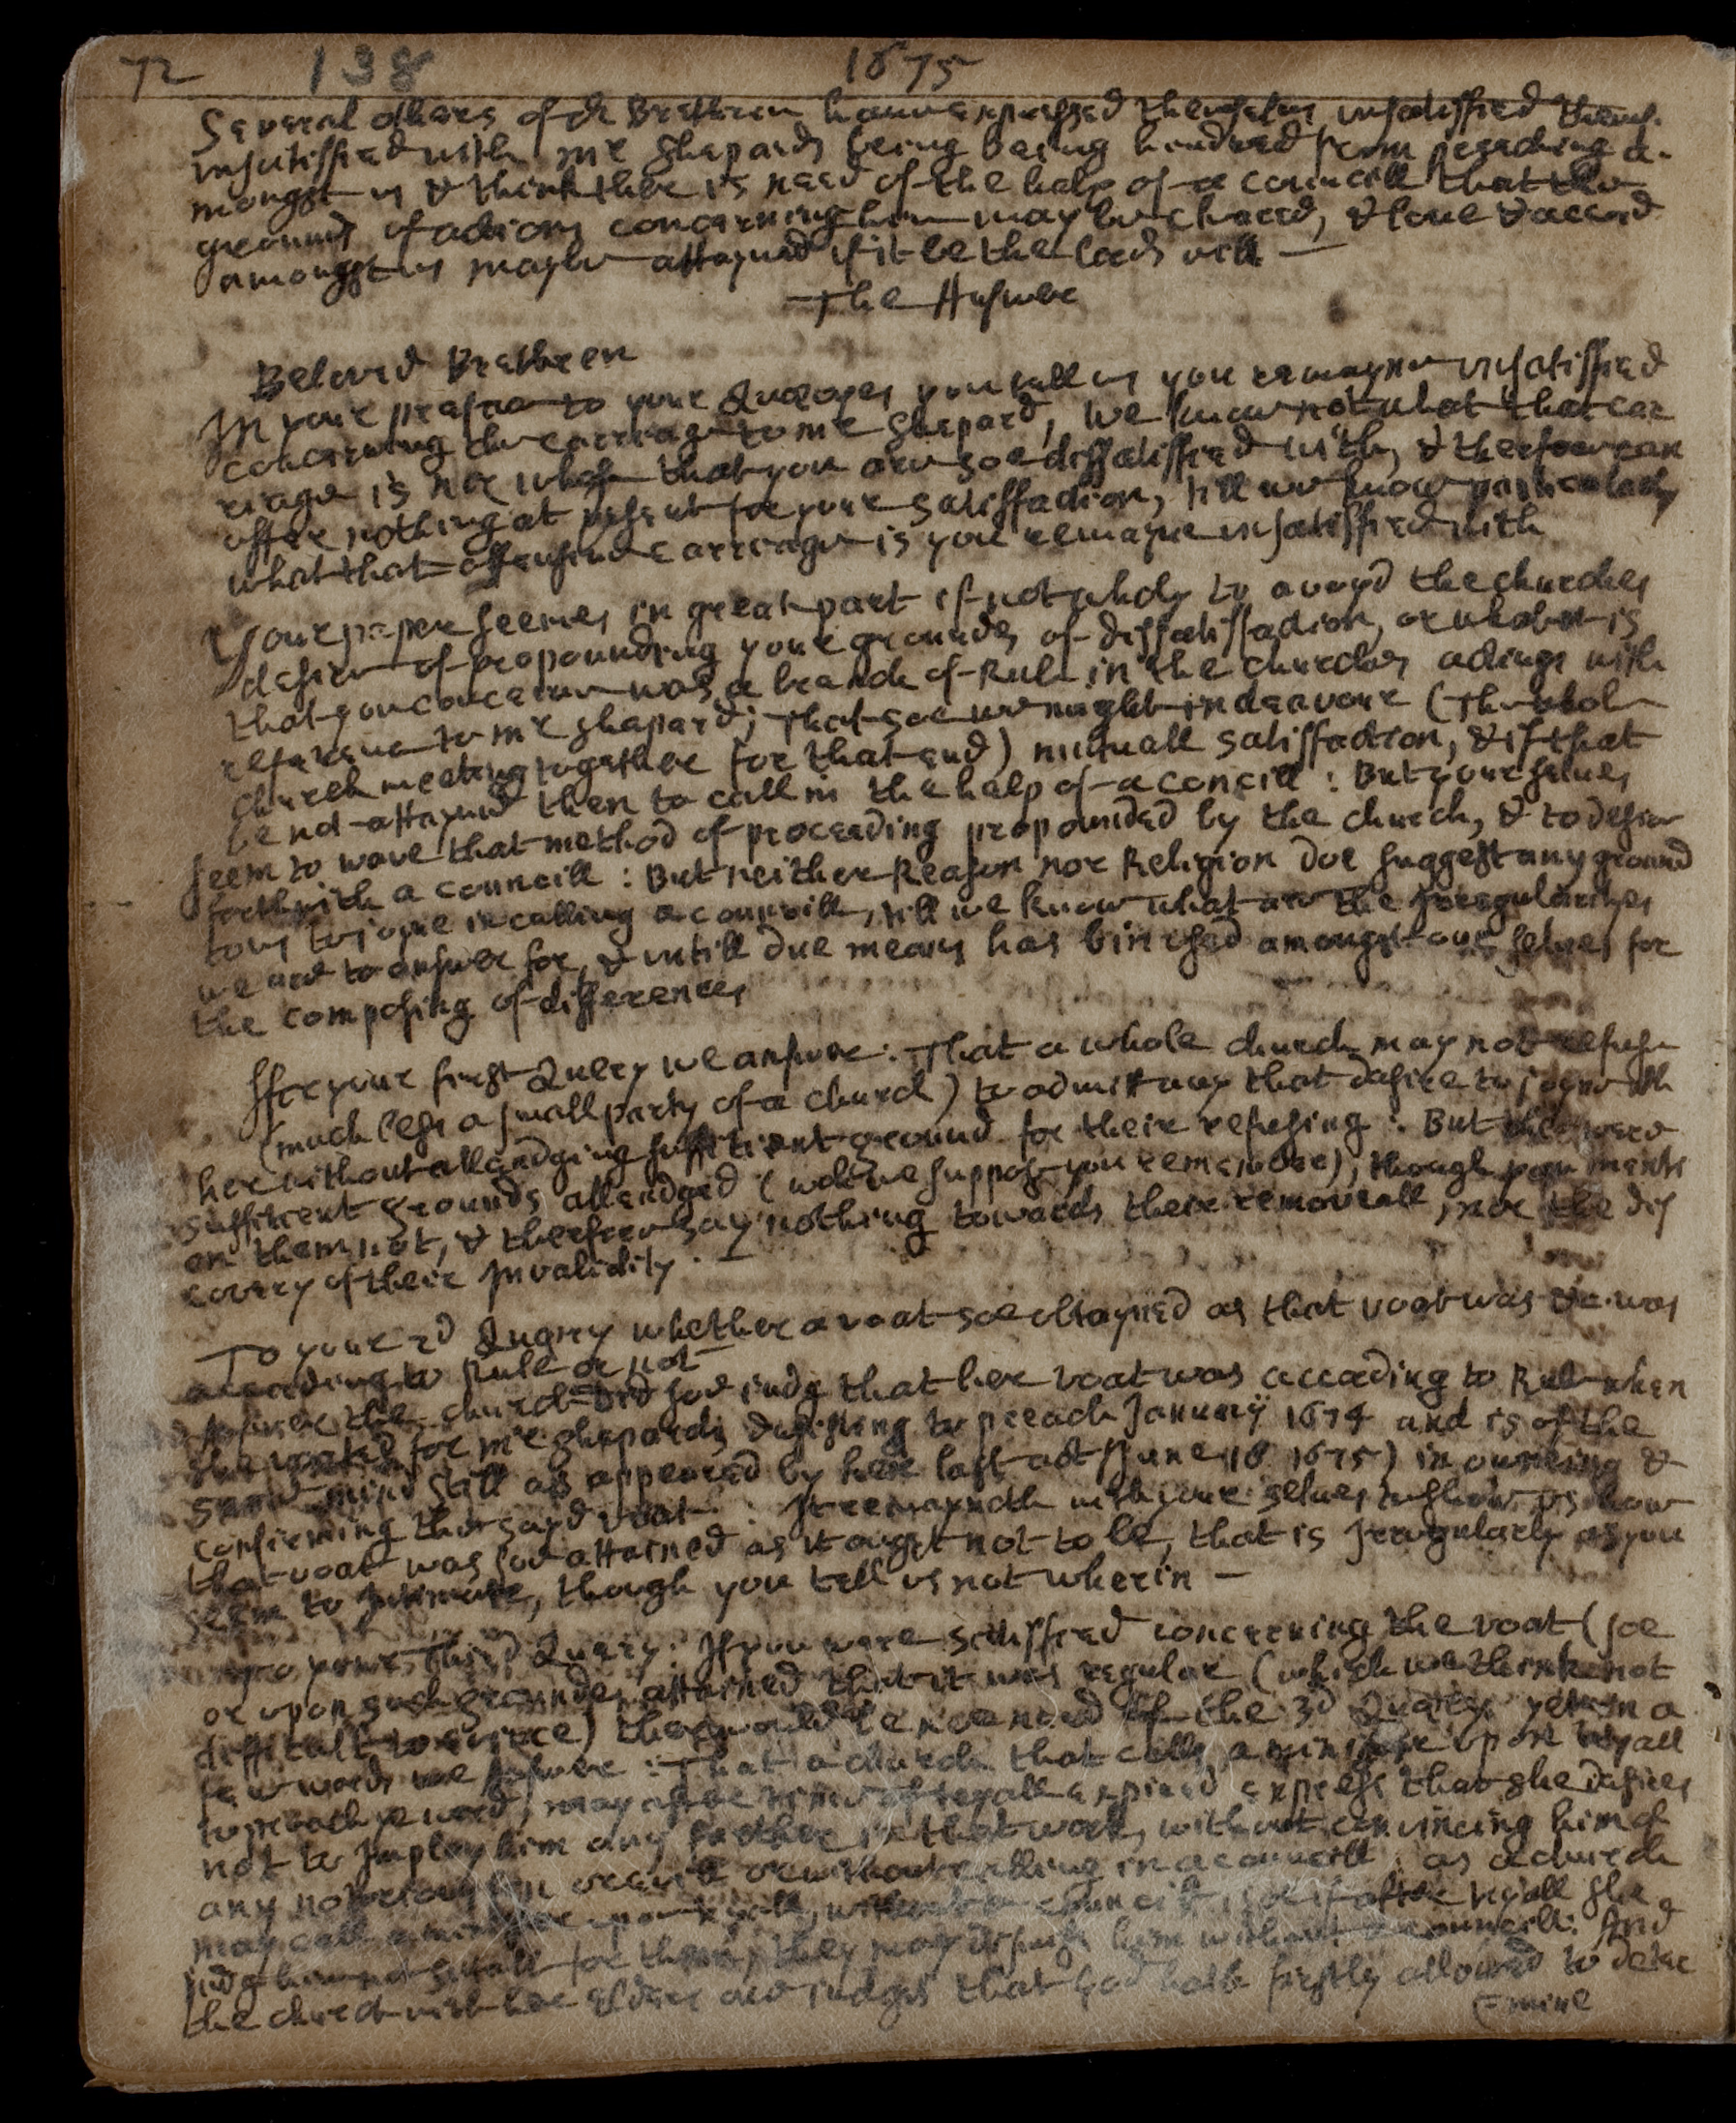 72 138 1675
Several others of the Brethren haue expressed themselus unsatissfied
unsatissfied with mr Shepards being being hindred from preaching a-
mongst us & think there is need of the help of a councill that the
grounds of actions concerning him may be cleared, & loue & accord
amongst us maybe attayned if it be the lords will —
The Answer
Beloved Brethren
In your preface to your Queryes you tell us you remayne unsatissfied
concerning the carriage to mr Shepard, we know not what that car
riage is nor whose that you are soe dissatissfied with, & therfore can
offer nothing at present for your satissfaction, till we know particularly
what that offensive carriage is you remayne unsatissfied with
Your paper seemes in great part if not wholy to avoyd the churches
desire of propounding your grounds of dissatissfaction, or what it is
that you conceive was a breach of Rule in the churches actings with
referenc to mr Shepard; That soe we might indeavour (the whole
church meeting together for that end) mutuall satissfaction, & if that
be not attayned then to call in the help of a concill: But yourselues
seem to wave that method of proceeding propounded by the church, & to desire
forthwith a councill: But neither Reason nor Religion doe suggest any ground
to us to joyne in calling a councill, till we know what are the Irregularityes
we are to answer for, & untill due means has bin used amongst our selues for
the composing of differences
For your first Query we answer: That a whole church may not refuse
(much less a small party of a church) to admitt any that desire to joyne with
her without alleadging suffitient ground for their refusing: But there were
suffitient grounds alleadged (wch we suppose you remember), though you menti
on them not, & therfore say nothing towards their removeall, nor the dis
covery of their Invalidity. —
To your 2d Query whether a voat soe obtayned as that voat was was
according to Rule or not —
Answer the church did soe judg that her voat was according to Rule when
she voated for mr Shepards desisting to preach January 1674 and is of the
same mind still as appeared by her last act (June 18 1675) in owneing &
confirming the sayd voat: It remayneth with your selues to shew us how
that voat was soe attained as it ought not to be, that is Irregularly as you
seem to Intimate, though you tell us not wherin —
To your Third Query: If you were satissfied concerning the voat (soe
or upon such grounds attained that it was regular (which we think not
difficult to evince) there would be noe need of the 3d Query: yet in a
few words we Answer: That a church that calls a minister upon tryall
to preach ye word, may after time of tryall expired express that she desires
not to Imploy him any further in that work, without convincing him of
any notorious sin or evill or without calling in a councill. as a church
may call a minister upon tryall, without a councill, soe if after tryall she
judg him not sutable for them, they may dismiss him without a councill: And
the church with her Elders are judges that god hath firstly allowed to deter
(=mine